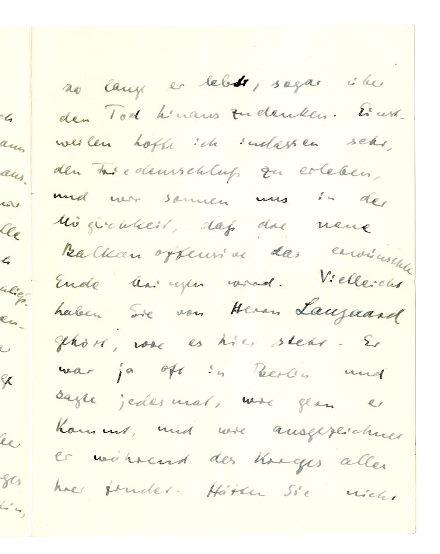 so lange er lebt, sogar über
den Tod hinaus zu denken. Einst-
weilen hoffe ich indessen sehr,
den Friedensschluß zu erleben,
und wir sonnen uns in der
Möglichkeit, daß die neue
Balkanoffensive das erwünschte
Ende bringen wird. Vielleicht
haben Sie von Herrn Langaard
gehört, wie es hier steht. Er
war ja oft in Berlin und
sagte jedesmal, wie gern er
kommt, und wie ausgezeichnet
er während des Krieges alles
hier findet. Hätten Sie nicht